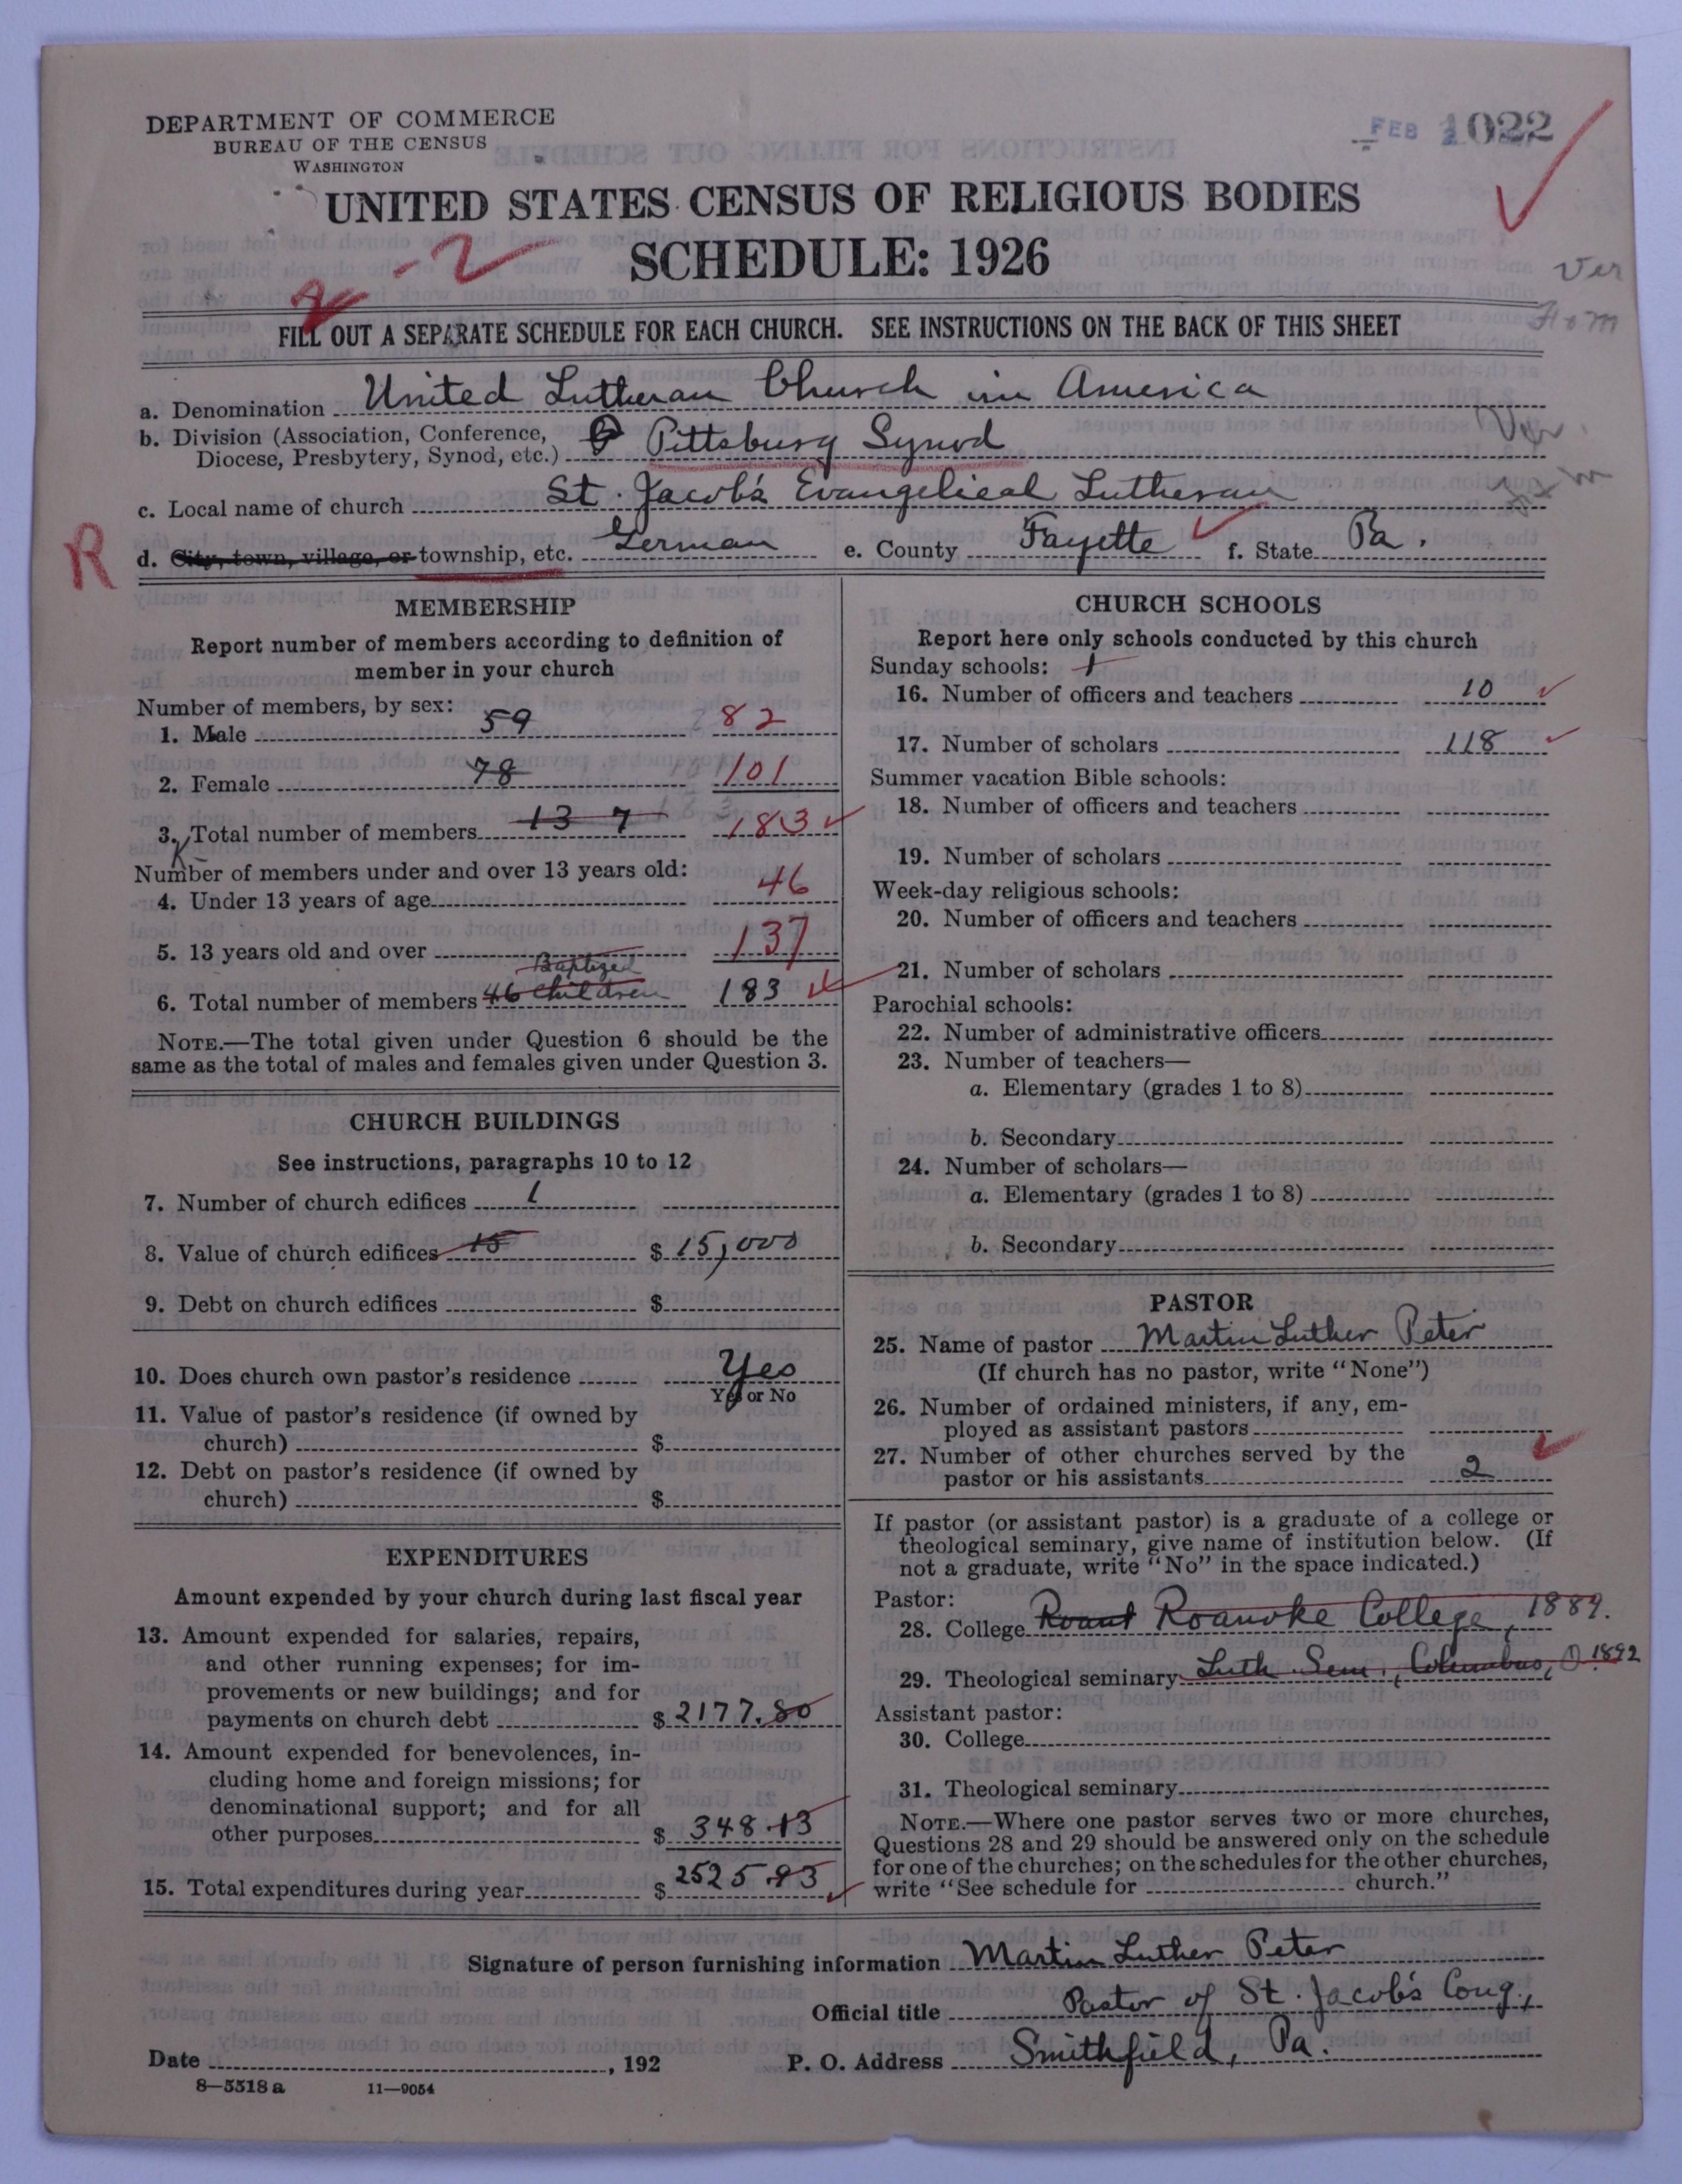 DEPARTMENT OF COMMERCE
BUREAU OF THE CENSUS
WASHINGTON
FEB 1022
UNITED STATES CENSUS OF RELIGIOUS BODIES
SCHEDULE: 1926
- 2
Ver
FILL OUT A SEPARATE SCHEDULE FOR EACH CHURCH. SEE INSTRUCTIONS ON THE BACK OF THIS SHEET
a. Denomination United Lutheran Church in America
b. Division (Association, Conference, Diocese, Presbytery, Synod, etc.) Pittsburg Synod
c. Local name of church St. Jacob's Evangelical Lutheran
R
d. City, town, village, or township, etc. German e. County Fayette f. State Pa.
MEMBERSHIP
Report number of members according to definition of
member in your church
Number of members, by sex:
1. Male 59 82
2. Female 78 101
3. Total number of members 137 183
Number of members under and over 13 years old:
4. Under 13 years of age 46
5. 13 years old and over 137
Baptized
6. Total number of members 46 children 183
NOTE.—The total given under Question 6 should be the
same as the total of males and females given under Question 3.
CHURCH BUILDINGS
See instructions, paragraphs 10 to 12
7. Number of church edifices 1
8. Value of church edifices 15 $ 15,000
9. Debt on church edifices $
10. Does church own pastor's residence Yes
Yes or No
11. Value of pastor's residence (if owned by
church) $
12. Debt on pastor's residence (if owned by
church) $
EXPENDITURES
Amount expended by your church during last fiscal year
13. Amount expended for salaries, repairs,
and other running expenses; for im-
provements or new buildings; and for
payments on church debt $ 2177.80
14. Amount expended for benevolences, in-
cluding home and foreign missions; for
denominational support; and for all
other purposes $ 348.13
15. Total expenditures during year $ 2525.93
CHURCH SCHOOLS
Report here only schools conducted by this church
Sunday schools: 1
16. Number of officers and teachers 10
17. Number of scholars 118
Summer vacation Bible schools:
18. Number of officers and teachers
19. Number of scholars
Week-day religious schools:
20. Number of officers and teachers
21. Number of scholars
Parochial schools:
22. Number of administrative officers
23. Number of teachers—
a. Elementary (grades 1 to 8)
b. Secondary
24. Number of scholars—
a. Elementary (grades 1 to 8)
b. Secondary
PASTOR
25. Name of pastor Martin Luther Peter
(If church has no pastor, write "None")
26. Number of ordained ministers, if any, em-
ployed as assistant pastors
27. Number of other churches served by the
pastor or his assistants 2
If pastor (or assistant pastor) is a graduate of a college or
theological seminary, give name of institution below. (If
not a graduate, write "No" in the space indicated.)
Pastor:
28. College Roanoke College, 1889.
29. Theological seminary Luth. Sem., Columbus, O. 1892
Assistant pastor:
30. College
31. Theological seminary
NOTE.—Where one pastor serves two or more churches,
Questions 28 and 29 should be answered only on the schedule
for one of the churches; on the schedules for the other churches,
write "See schedule for church."
Signature of person furnishing information Martin Luther Peter
Official title Pastor of St. Jacob's Cong.,
Date , 192 P. O. Address Smithfield, Pa.
8—5518 a 11—9054